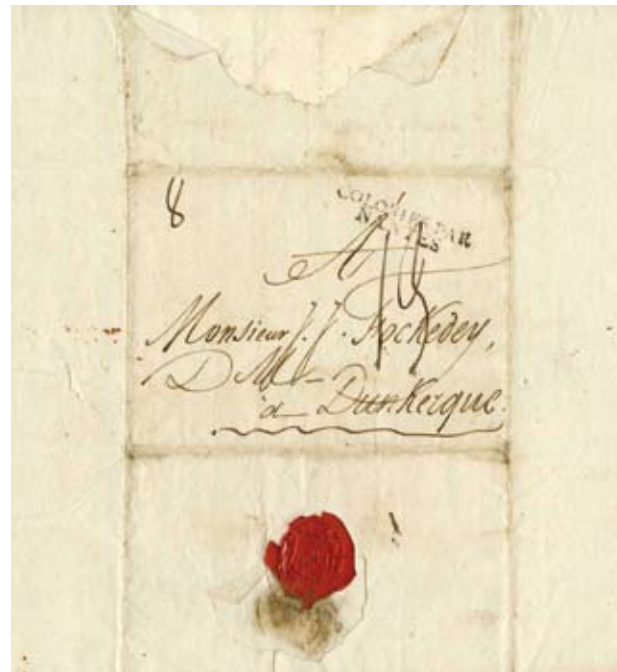 8
COLONIES PAR
NANTES
A
Monsieur J. J. Fockedey,
D M
à Dunkerque.